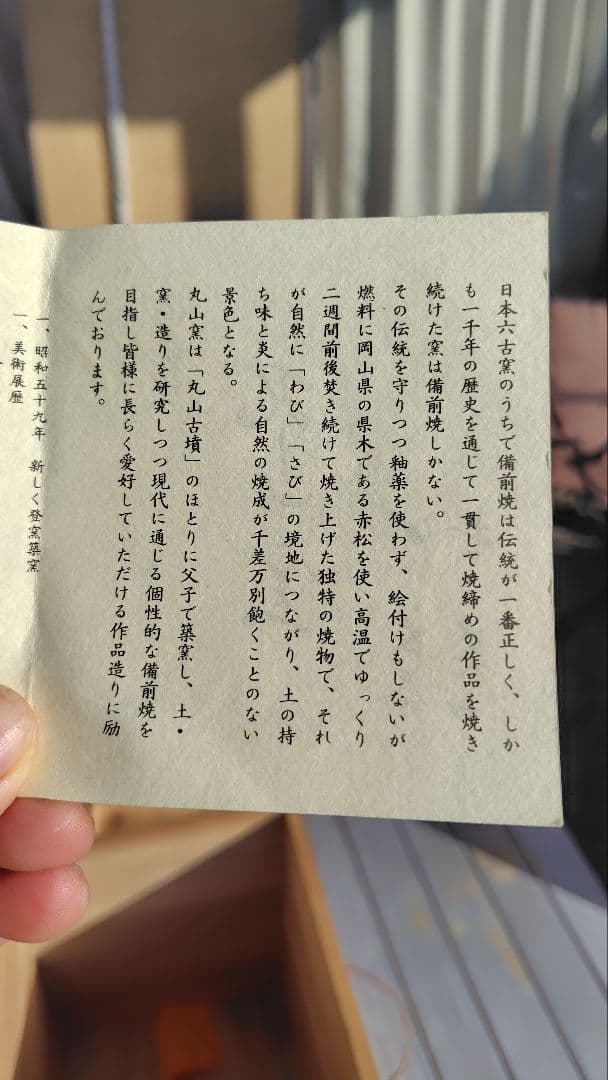 日本六古窯のうちで備前焼は伝統が一番正しく、しか
も一千年の歴史を通じて一貫して焼締めの作品を焼き
続けた窯は備前焼しかない。
その伝統を守りつつ釉薬を使わず、絵付けもしないが
燃料に岡山県の県木である赤松を使い高温でゆっくり
二週間前後焚き続けて焼き上げた独特の焼物で、それ
が自然に「わび」「さび」の境地につながり、土の持
ち味と炎による自然の焼成が千差万別飽くことのない
景色となる。
丸山窯は「丸山古墳」のほとりに父子で築窯し、土・
窯・造りを研究しつつ現代に通じる個性的な備前焼を
目指し皆様に長らく愛好していただける作品造りに励
んでおります。
一、昭和五十九年　新しく登窯築窯
一、美術展歴